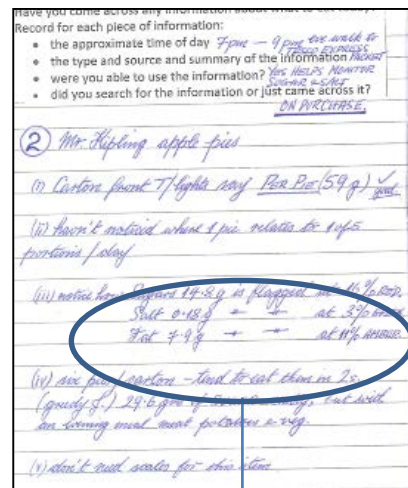 Have you come across any information about what to
Record for each piece of information:
• the approximate time of day 7pm — 9pm eve walk to TESCO EXPRESS
• the type and source and summary of the information PACKET
• were you able to use the information? YES HELPS MONITOR SUGAR & SALT
• did you search for the information or just came across it?
ON PURCHASE.
② Mr. Kipling apple pies
(i) Carton front T/lights say PER PIE (59g) ✓ good
(ii) haven't noticed where 1 pie relates to 1 of 5
portions/day
(iii) notice how Sugars 14.8g is flagged at 16% RED.
Salt 0.18g " " at 3% GREEN
Fat 7.9g " " at 11% AMBER.
(iv) six pies/carton – tend to eat them in 2s
(greedy J.) 29.6gms of but with
an evening meal meat potatoes & veg.
(v) don't need scales for this item